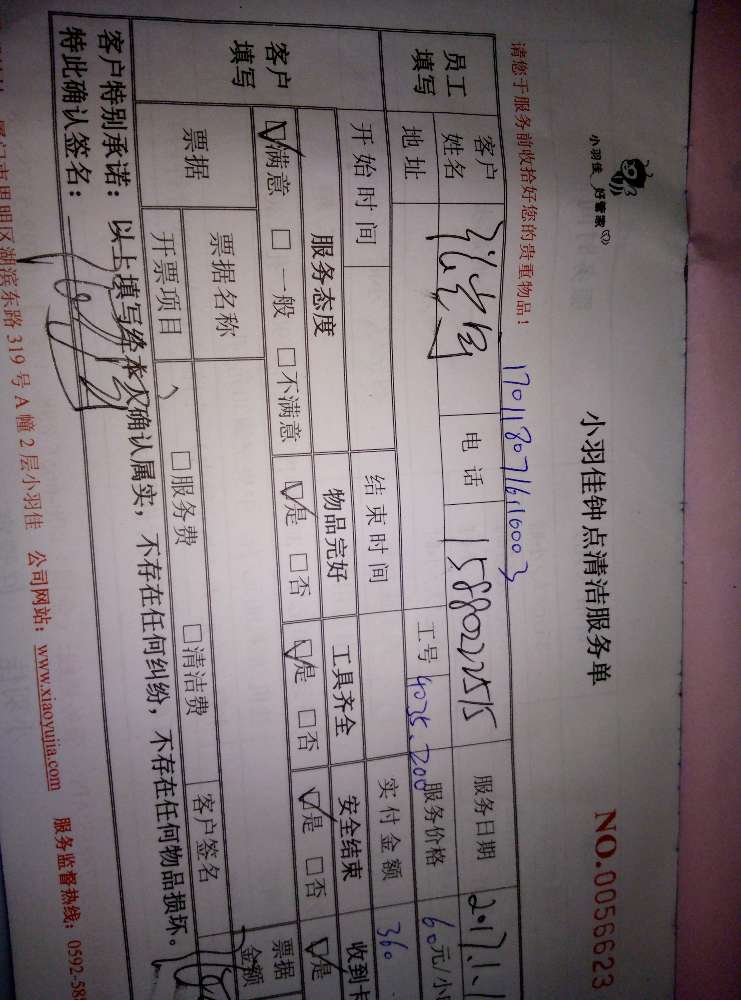 小羽佳 好管家
小羽佳钟点清洁服务单
NO.0056623
请您于服务前收拾好您的贵重物品！
1701180716116003
员工填写 客户姓名 电话 15880222515 服务日期 2017.1.1
地址 工号 4035.200 服务价格 60元/小
开始时间 结束时间 实付金额 360
客户填写 服务态度 物品完好 工具齐全 安全结束 收到卡
☑满意 □一般 □不满意 ☑是 □否 ☑是 □否 ☑是 □否 ☑是
票据 票据名称 客户签名 票据金额
开票项目 □服务费 □清洁费
客户特别承诺：以上填写经本人确认属实，不存在任何纠纷，不存在任何物品损坏。
特此确认签名：
厦门市思明区湖滨东路319号A幢2层小羽佳 公司网站：www.xiaoyujia.com 服务监督热线：0592-58